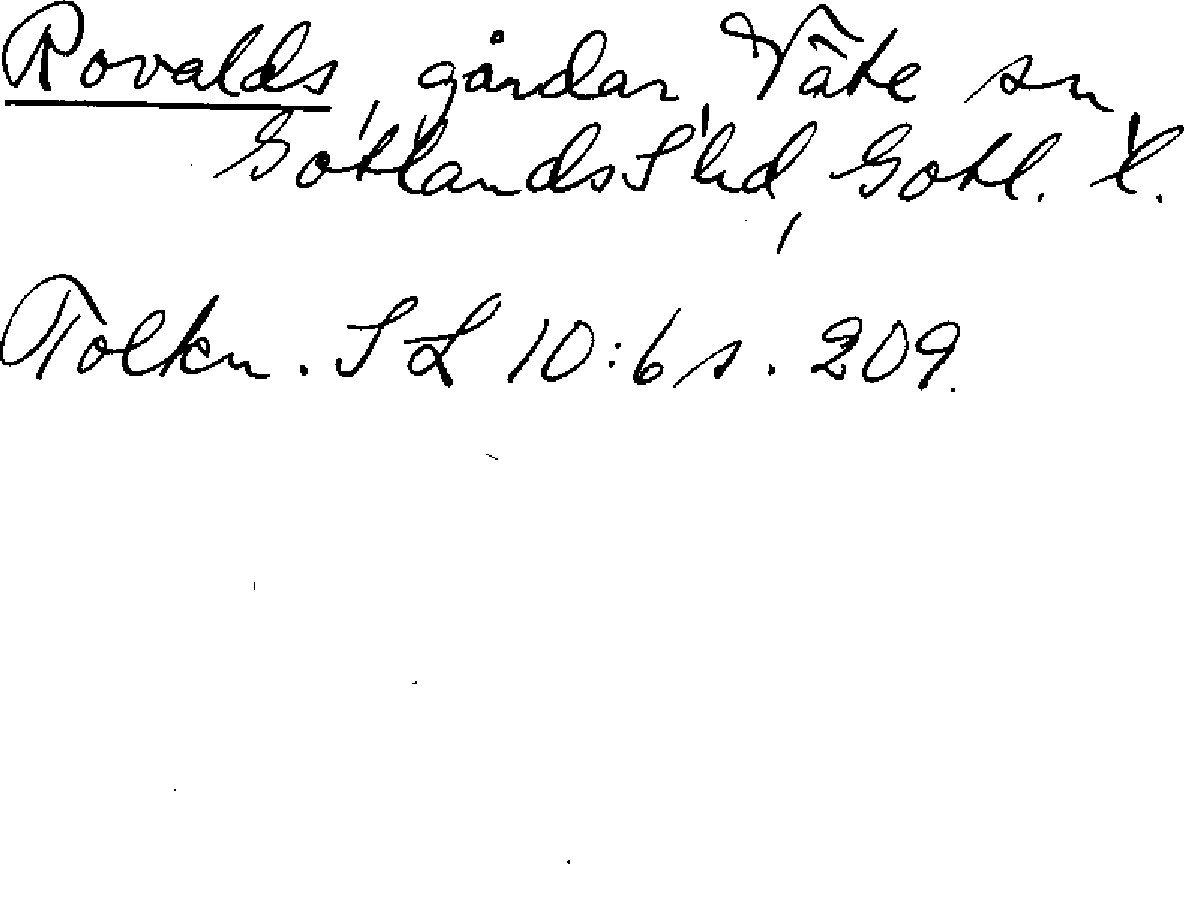 Rovalds, gårdar, Väte sn,
Gotlands S hd, Gotl. l.
Tolkn. SL 10:6 s. 209.